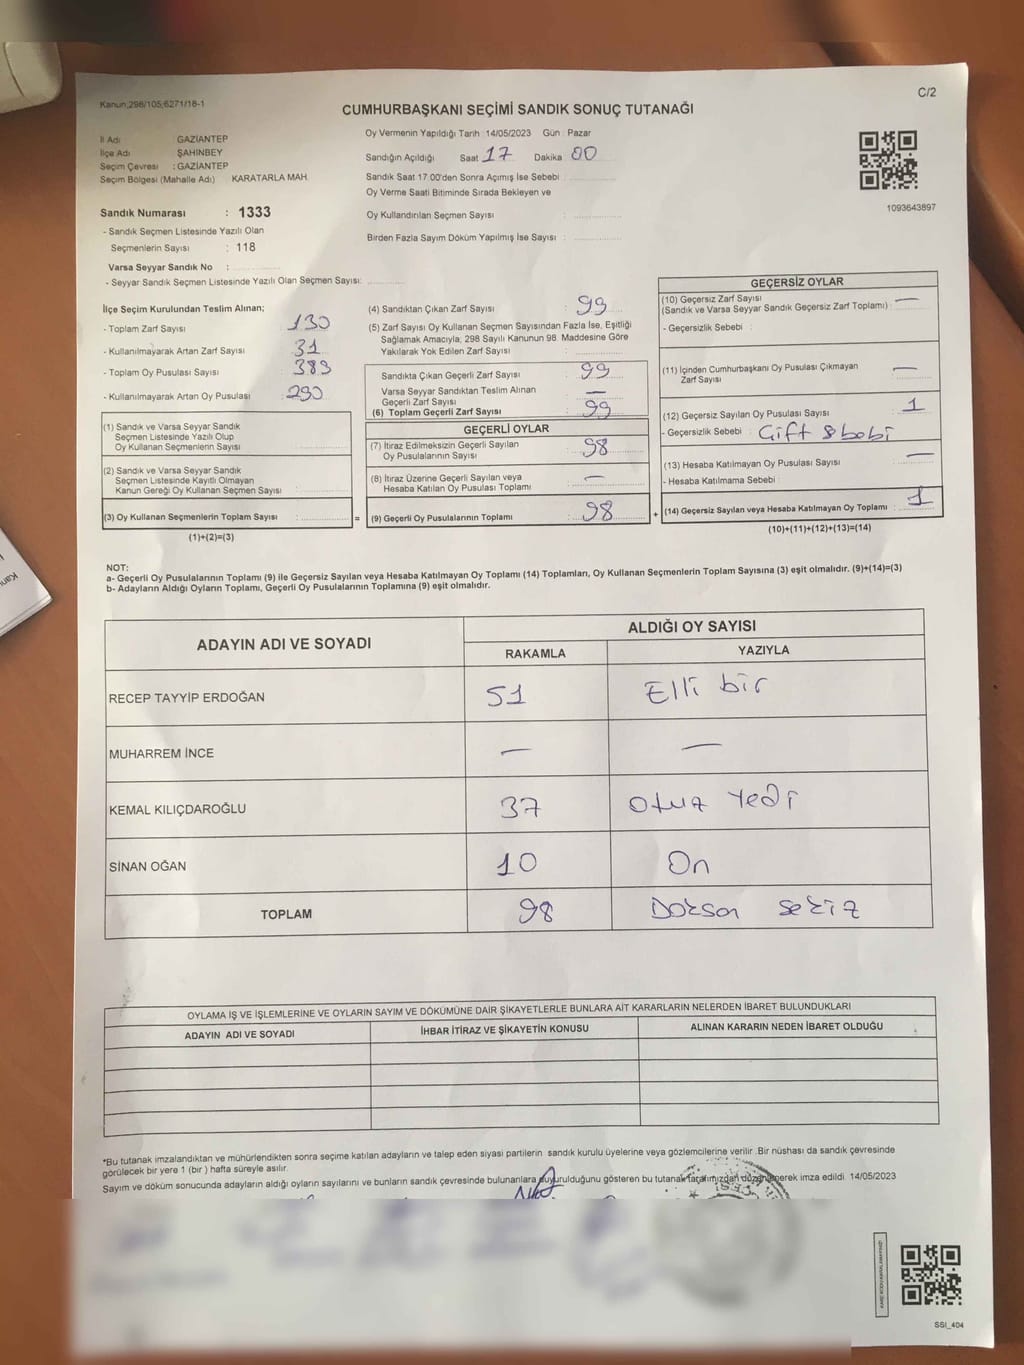 Kanun;298/105;6271/18-1
C/2
CUMHURBAŞKANI SEÇİMİ SANDIK SONUÇ TUTANAĞI
İl Adı : GAZİANTEP
İlçe Adı : ŞAHİNBEY
Seçim Çevresi : GAZİANTEP
Seçim Bölgesi (Mahalle Adı) KARATARLA MAH.
Oy Vermenin Yapıldığı Tarih : 14/05/2023 Gün : Pazar
Sandığın Açıldığı Saat 17 Dakika 00
Sandık Saat 17:00'den Sonra Açımış İse Sebebi :
Oy Verme Saati Bitiminde Sırada Bekleyen ve
Oy Kullandırılan Seçmen Sayısı :
Birden Fazla Sayım Döküm Yapılmış İse Sayısı :
1093643897
Sandık Numarası : 1333
- Sandık Seçmen Listesinde Yazılı Olan
Seçmenlerin Sayısı : 118
Varsa Seyyar Sandık No :
- Seyyar Sandık Seçmen Listesinde Yazılı Olan Seçmen Sayısı:
İlçe Seçim Kurulundan Teslim Alınan;
- Toplam Zarf Sayısı : 130
- Kullanılmayarak Artan Zarf Sayısı : 31
- Toplam Oy Pusulası Sayısı : 389
- Kullanılmayarak Artan Oy Pusulası : 290
(1) Sandık ve Varsa Seyyar Sandık
Seçmen Listesinde Yazılı Olup
Oy Kullanan Seçmenlerin Sayısı :
(2) Sandık ve Varsa Seyyar Sandık
Seçmen Listesinde Kayıtlı Olmayan
Kanun Gereği Oy Kullanan Seçmen Sayısı :
(3) Oy Kullanan Seçmenlerin Toplam Sayısı : =
(1)+(2)=(3)
(4) Sandıktan Çıkan Zarf Sayısı : 99
(5) Zarf Sayısı Oy Kullanan Seçmen Sayısından Fazla İse, Eşitliği
Sağlamak Amacıyla; 298 Sayılı Kanunun 98. Maddesine Göre
Yakılarak Yok Edilen Zarf Sayısı :
Sandıkta Çıkan Geçerli Zarf Sayısı : 99
Varsa Seyyar Sandıktan Teslim Alınan
Geçerli Zarf Sayısı : —
(6) Toplam Geçerli Zarf Sayısı : 99
GEÇERLİ OYLAR
(7) İtiraz Edilmeksizin Geçerli Sayılan
Oy Pusulalarının Sayısı : 98
(8) İtiraz Üzerine Geçerli Sayılan veya
Hesaba Katılan Oy Pusulası Toplamı : —
(9) Geçerli Oy Pusulalarının Toplamı : 98 +
GEÇERSİZ OYLAR
(10) Geçersiz Zarf Sayısı
(Sandık ve Varsa Seyyar Sandık Geçersiz Zarf Toplamı) : —
- Geçersizlik Sebebi :
(11) İçinden Cumhurbaşkanı Oy Pusulası Çıkmayan
Zarf Sayısı : —
(12) Geçersiz Sayılan Oy Pusulası Sayısı : 1
- Geçersizlik Sebebi : Çift
(13) Hesaba Katılmayan Oy Pusulası Sayısı : —
- Hesaba Katılmama Sebebi :
(14) Geçersiz Sayılan veya Hesaba Katılmayan Oy Toplamı : 1
(10)+(11)+(12)+(13)=(14)
NOT:
a- Geçerli Oy Pusulalarının Toplamı (9) ile Geçersiz Sayılan veya Hesaba Katılmayan Oy Toplamı (14) Toplamları, Oy Kullanan Seçmenlerin Toplam Sayısına (3) eşit olmalıdır. (9)+(14)=(3)
b- Adayların Aldığı Oyların Toplamı, Geçerli Oy Pusulalarının Toplamına (9) eşit olmalıdır.
ADAYIN ADI VE SOYADI
ALDIĞI OY SAYISI
RAKAMLA YAZIYLA
RECEP TAYYİP ERDOĞAN 51 Elli bir
MUHARREM İNCE — —
KEMAL KILIÇDAROĞLU 37 Otuz Yedi
SİNAN OĞAN 10 On
TOPLAM 98 Doksan sekiz
OYLAMA İŞ VE İŞLEMLERİNE VE OYLARIN SAYIM VE DÖKÜMÜNE DAİR ŞİKAYETLERLE BUNLARA AİT KARARLARIN NELERDEN İBARET BULUNDUKLARI
ADAYIN ADI VE SOYADI İHBAR İTİRAZ VE ŞİKAYETİN KONUSU ALINAN KARARIN NEDEN İBARET OLDUĞU
*Bu tutanak imzalandıktan ve mühürlendikten sonra seçime katılan adayların ve talep eden siyasi partilerin sandık kurulu üyelerine veya gözlemcilerine verilir. Bir nüshası da sandık çevresinde
görülecek bir yere 1 (bir) hafta süreyle asılır.
Sayım ve döküm sonucunda adayların aldığı oyların sayılarını ve bunların sandık çevresinde bulunanlara duyurulduğunu gösteren bu tutanak tarafımızdan düzenlenerek imza edildi. 14/05/2023
SSI_404